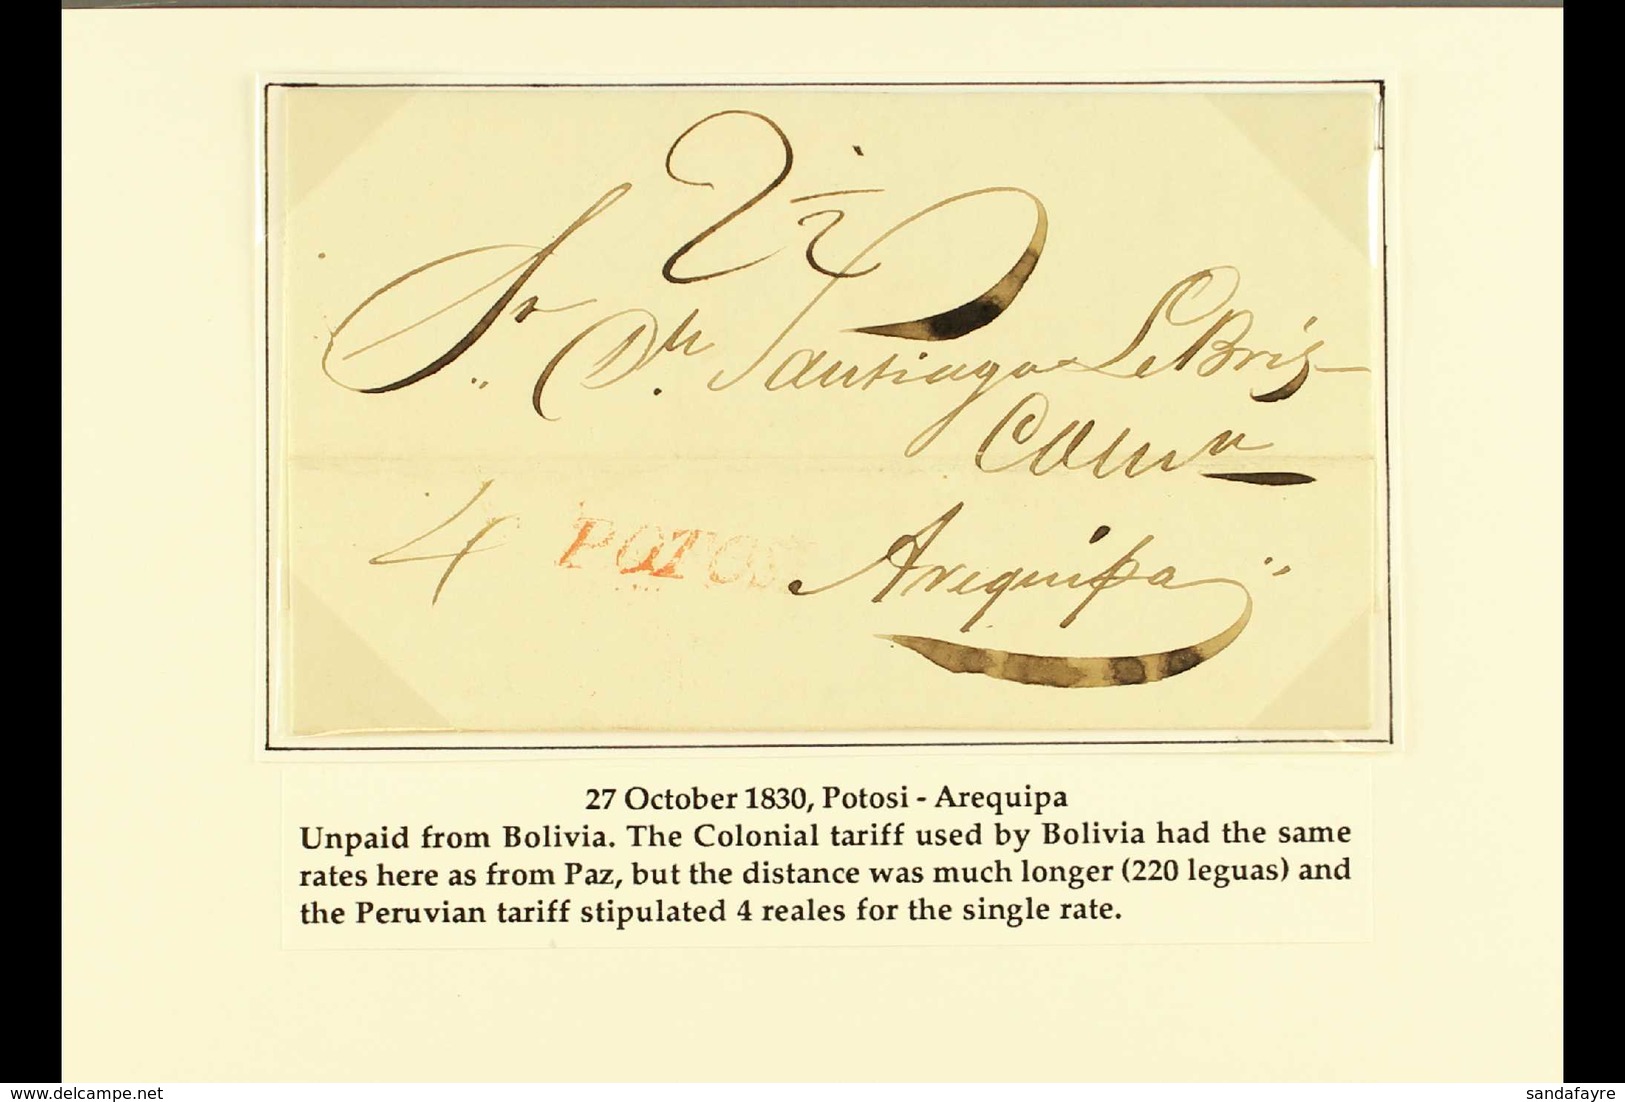 2 1/2
Sr Dn Santiago Le Bris
Arequipa
4 POTOSI
27 October 1830, Potosi - Arequipa
Unpaid from Bolivia. The Colonial tariff used by Bolivia had the same
rates here as from Paz, but the distance was much longer (220 leguas) and
the Peruvian tariff stipulated 4 reales for the single rate.
www.delcampe.net
sandafayre